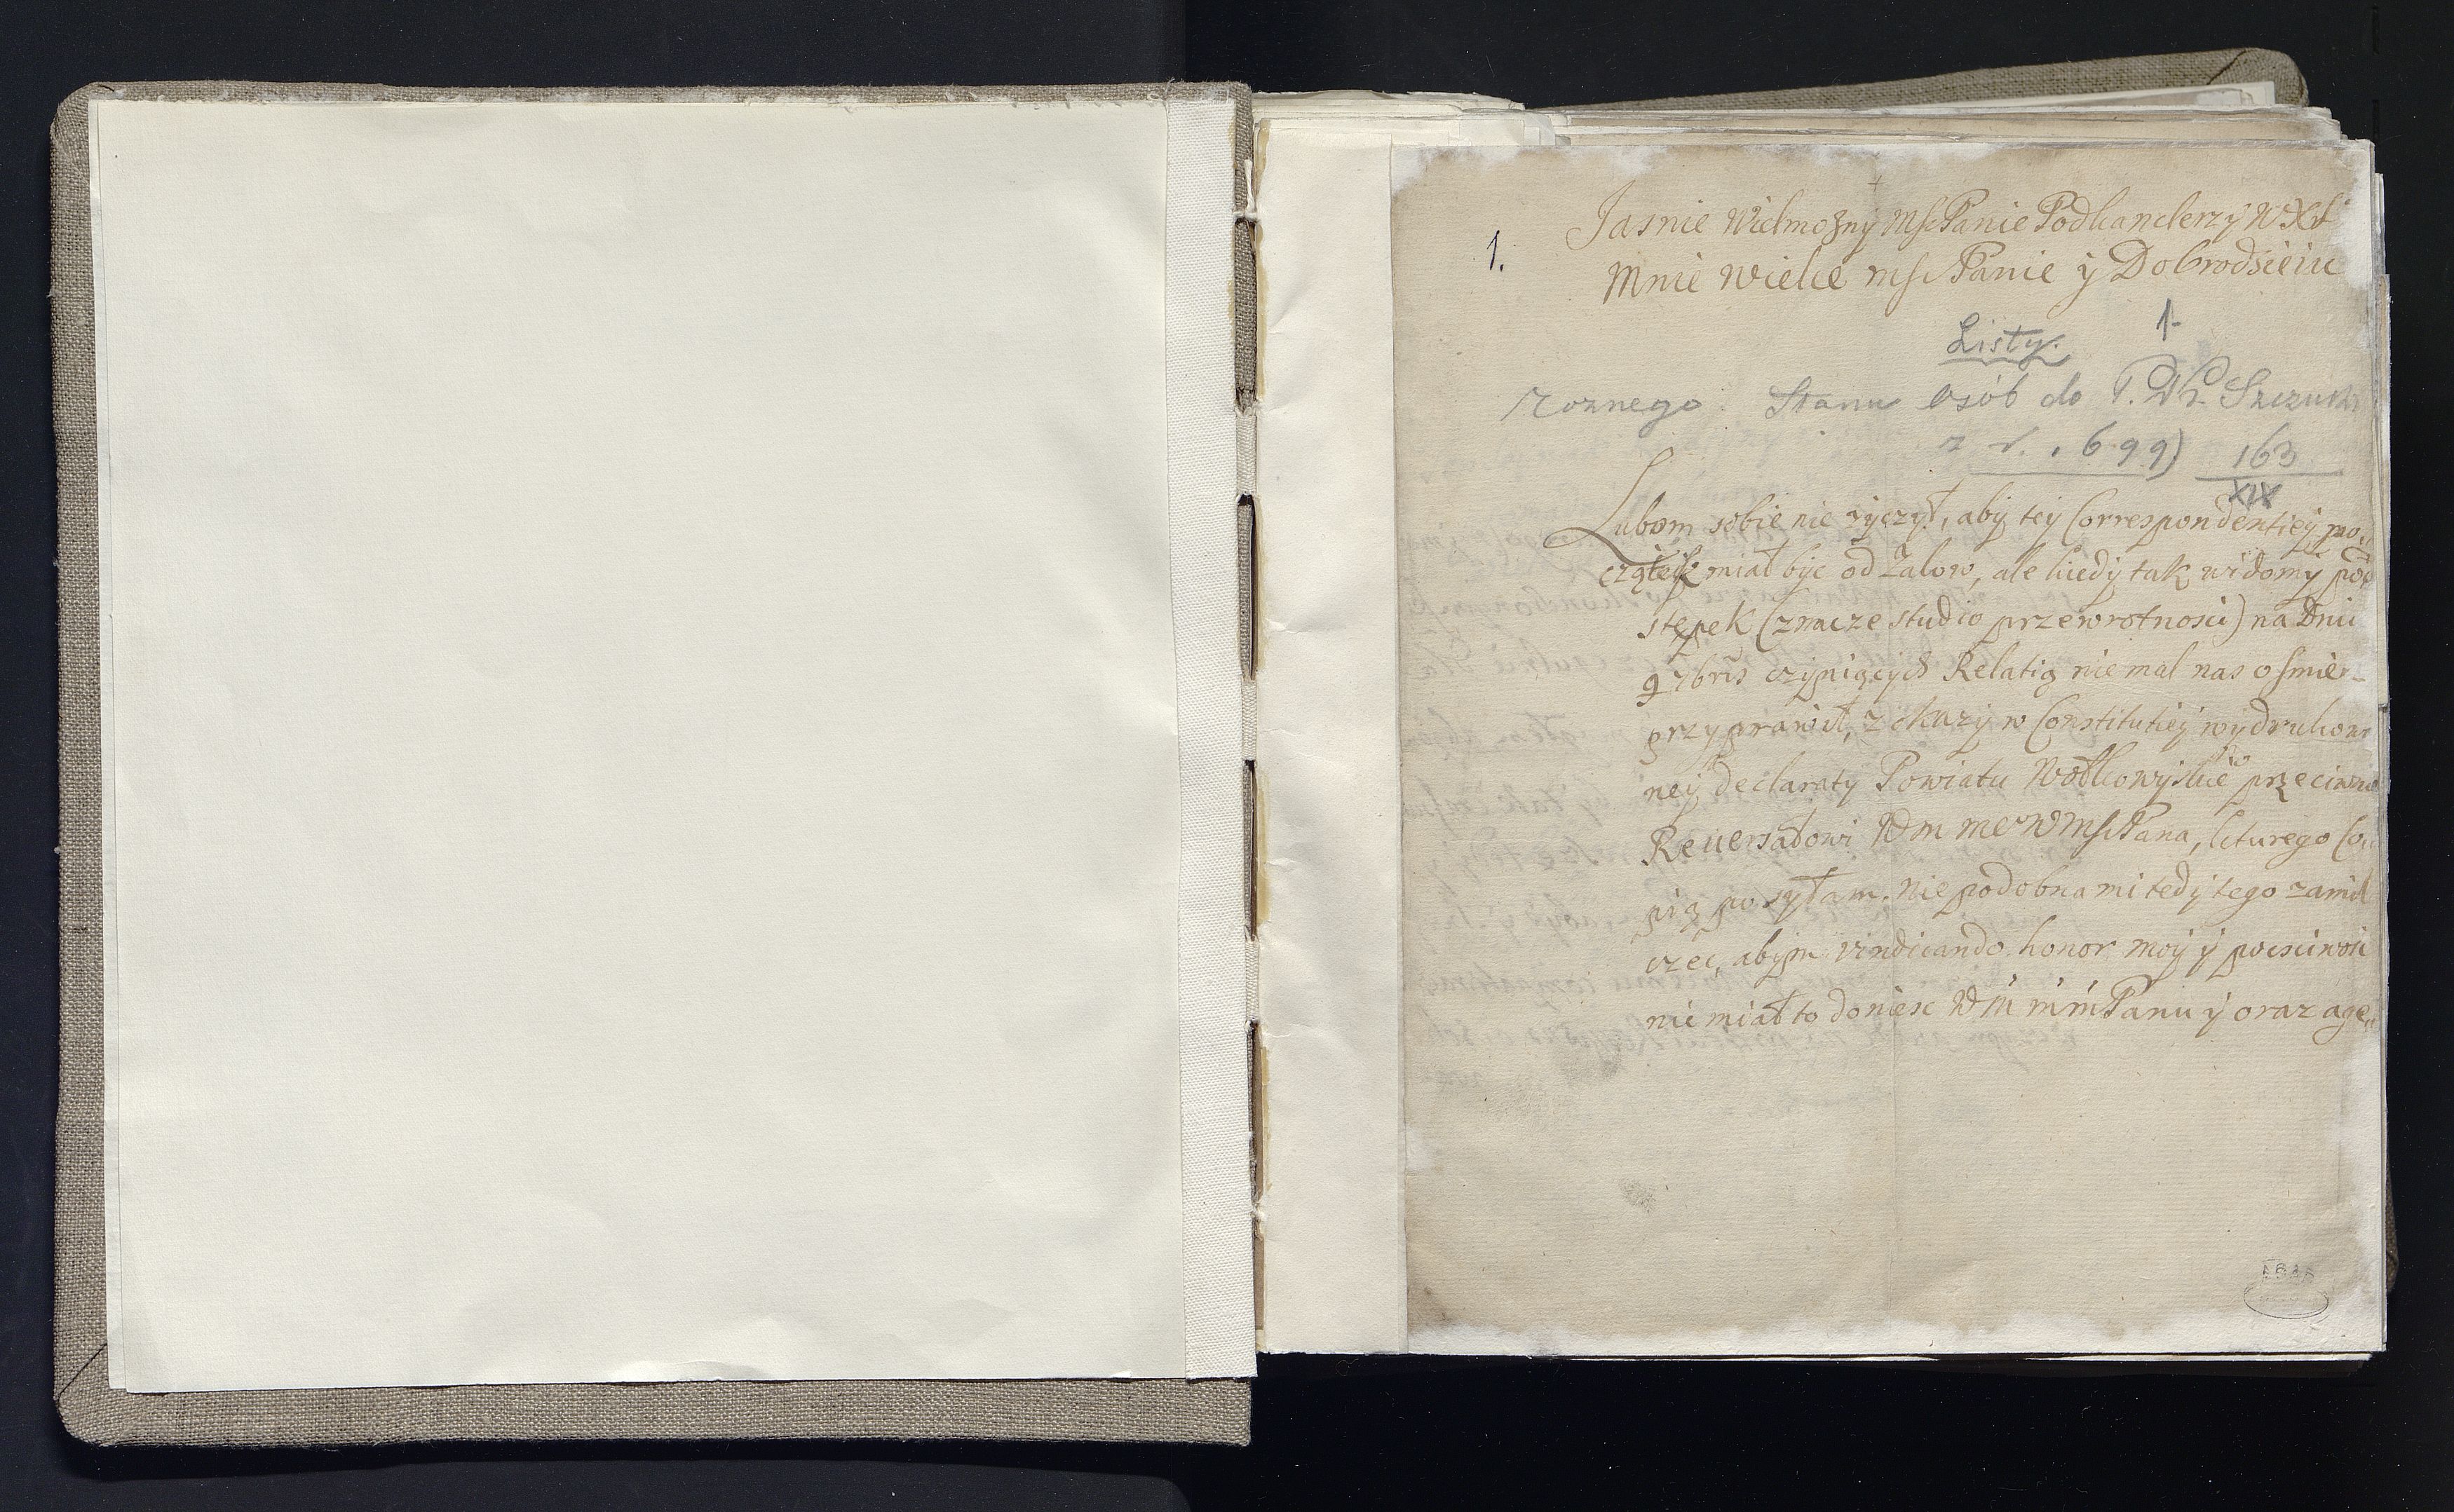 Jasnie Wielmożny Msc Panie Podkanclerzy WXLt
1.
Mnie wielce msc Panie ÿ Dobrodzieiu
1.
Listy.
roznego Stanu osób do P. Szczuki
z r. 1699)
163
XIX
Lubom sobie nie zÿczÿł, abÿ teÿ Correspondentieÿ po„
czątek miał bÿc od żalow, ale kiedÿ tak widomÿ po„
stępek (znacze studio przewrotnosci) na Dniu
9 7bris czÿniącÿch Relatią nie mal nas o smier„
przyprawił, z okazÿ w Constitutieÿ wÿdrukowa
neÿ declaratÿ Powiatu Wołkowÿskiego przeciwko
Reuersałowi Wm me WmscPana, kturego Co„
pią posÿłam. Niepodobna mi tedÿ tego zamil
czec, abÿm vindicando honor moÿ ÿ poczciwosc
nie miał to doniesc Wm mm Panu ÿ oraz age„